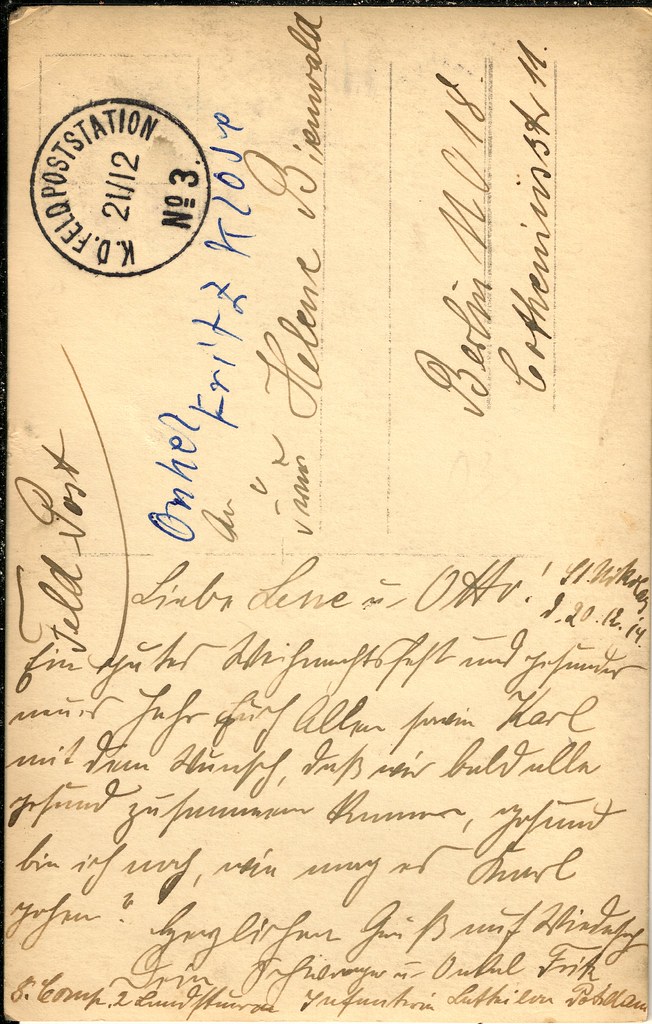 K.D. FELDPOSTSTATION
21/12
No 3.
Feld Post
Onkel
Fritz Klose
An
Helene Bienwald
Berlin NO 18.
11.
Liebe Lene u. Otto!
St. Nikolas
d. 20.12.14.
Ein gutes Weihnachtsfest und gesundes
neues Jahr Euch Allen sowie Karl
mit dem Wunsch, daß wir bald alle
gesund zusammen kommen, gesund
bin ich noch, wie mag es Karl
gehen?
Herzlichen Gruß auf Wiedersehen
Dein Schwager u. Onkel Fritz
8. Comp. 2 Landsturm Infanterie Battailon Potsdam